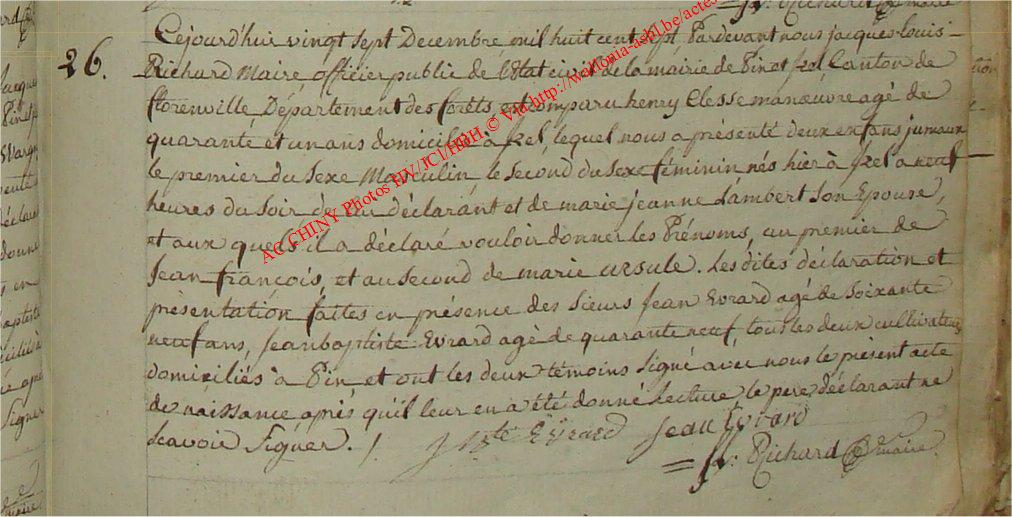 J. Richard maire
26.
Cejourd'hui vingt sept Decembre mil huit cent sept Pardevant nous jacques louis
Richard Maire, officier public de l'Etat civil de la mairie de Pin et Izel, Canton de
florenville Département des forêts est comparu henry Clesse manœuvre agé de
quarante et un ans domicilié à Izel, lequel nous a présenté deux enfans jumaux
le premier du sexe Masculin, le second du sexe féminin nés hier à Izel a neuf
heures du soir de lui déclarant et de marie jeanne Lambert son Epouse,
et aux quels il a déclaré vouloir donner les Prénoms, au premier de
Jean françois, et au second de marie ursule. Les dites déclaration et
présentation faites en présence des sieurs Jean Evrard agé de soixante
neuf ans, Jean baptiste Evrard agé de quarante neuf, tous les deux cultivateurs
domiciliés à Pin et ont les deux témoins signé avec nous le présent acte
de naissance après qu'il leur en a été donné lecture le pere déclarant ne
scavoir signer.
J Bte Evrard Jean Evrard
J. Richard maire
AC CHINY Photos HV/JCl/HBH © Via http://wallonia-asbl.be/actes